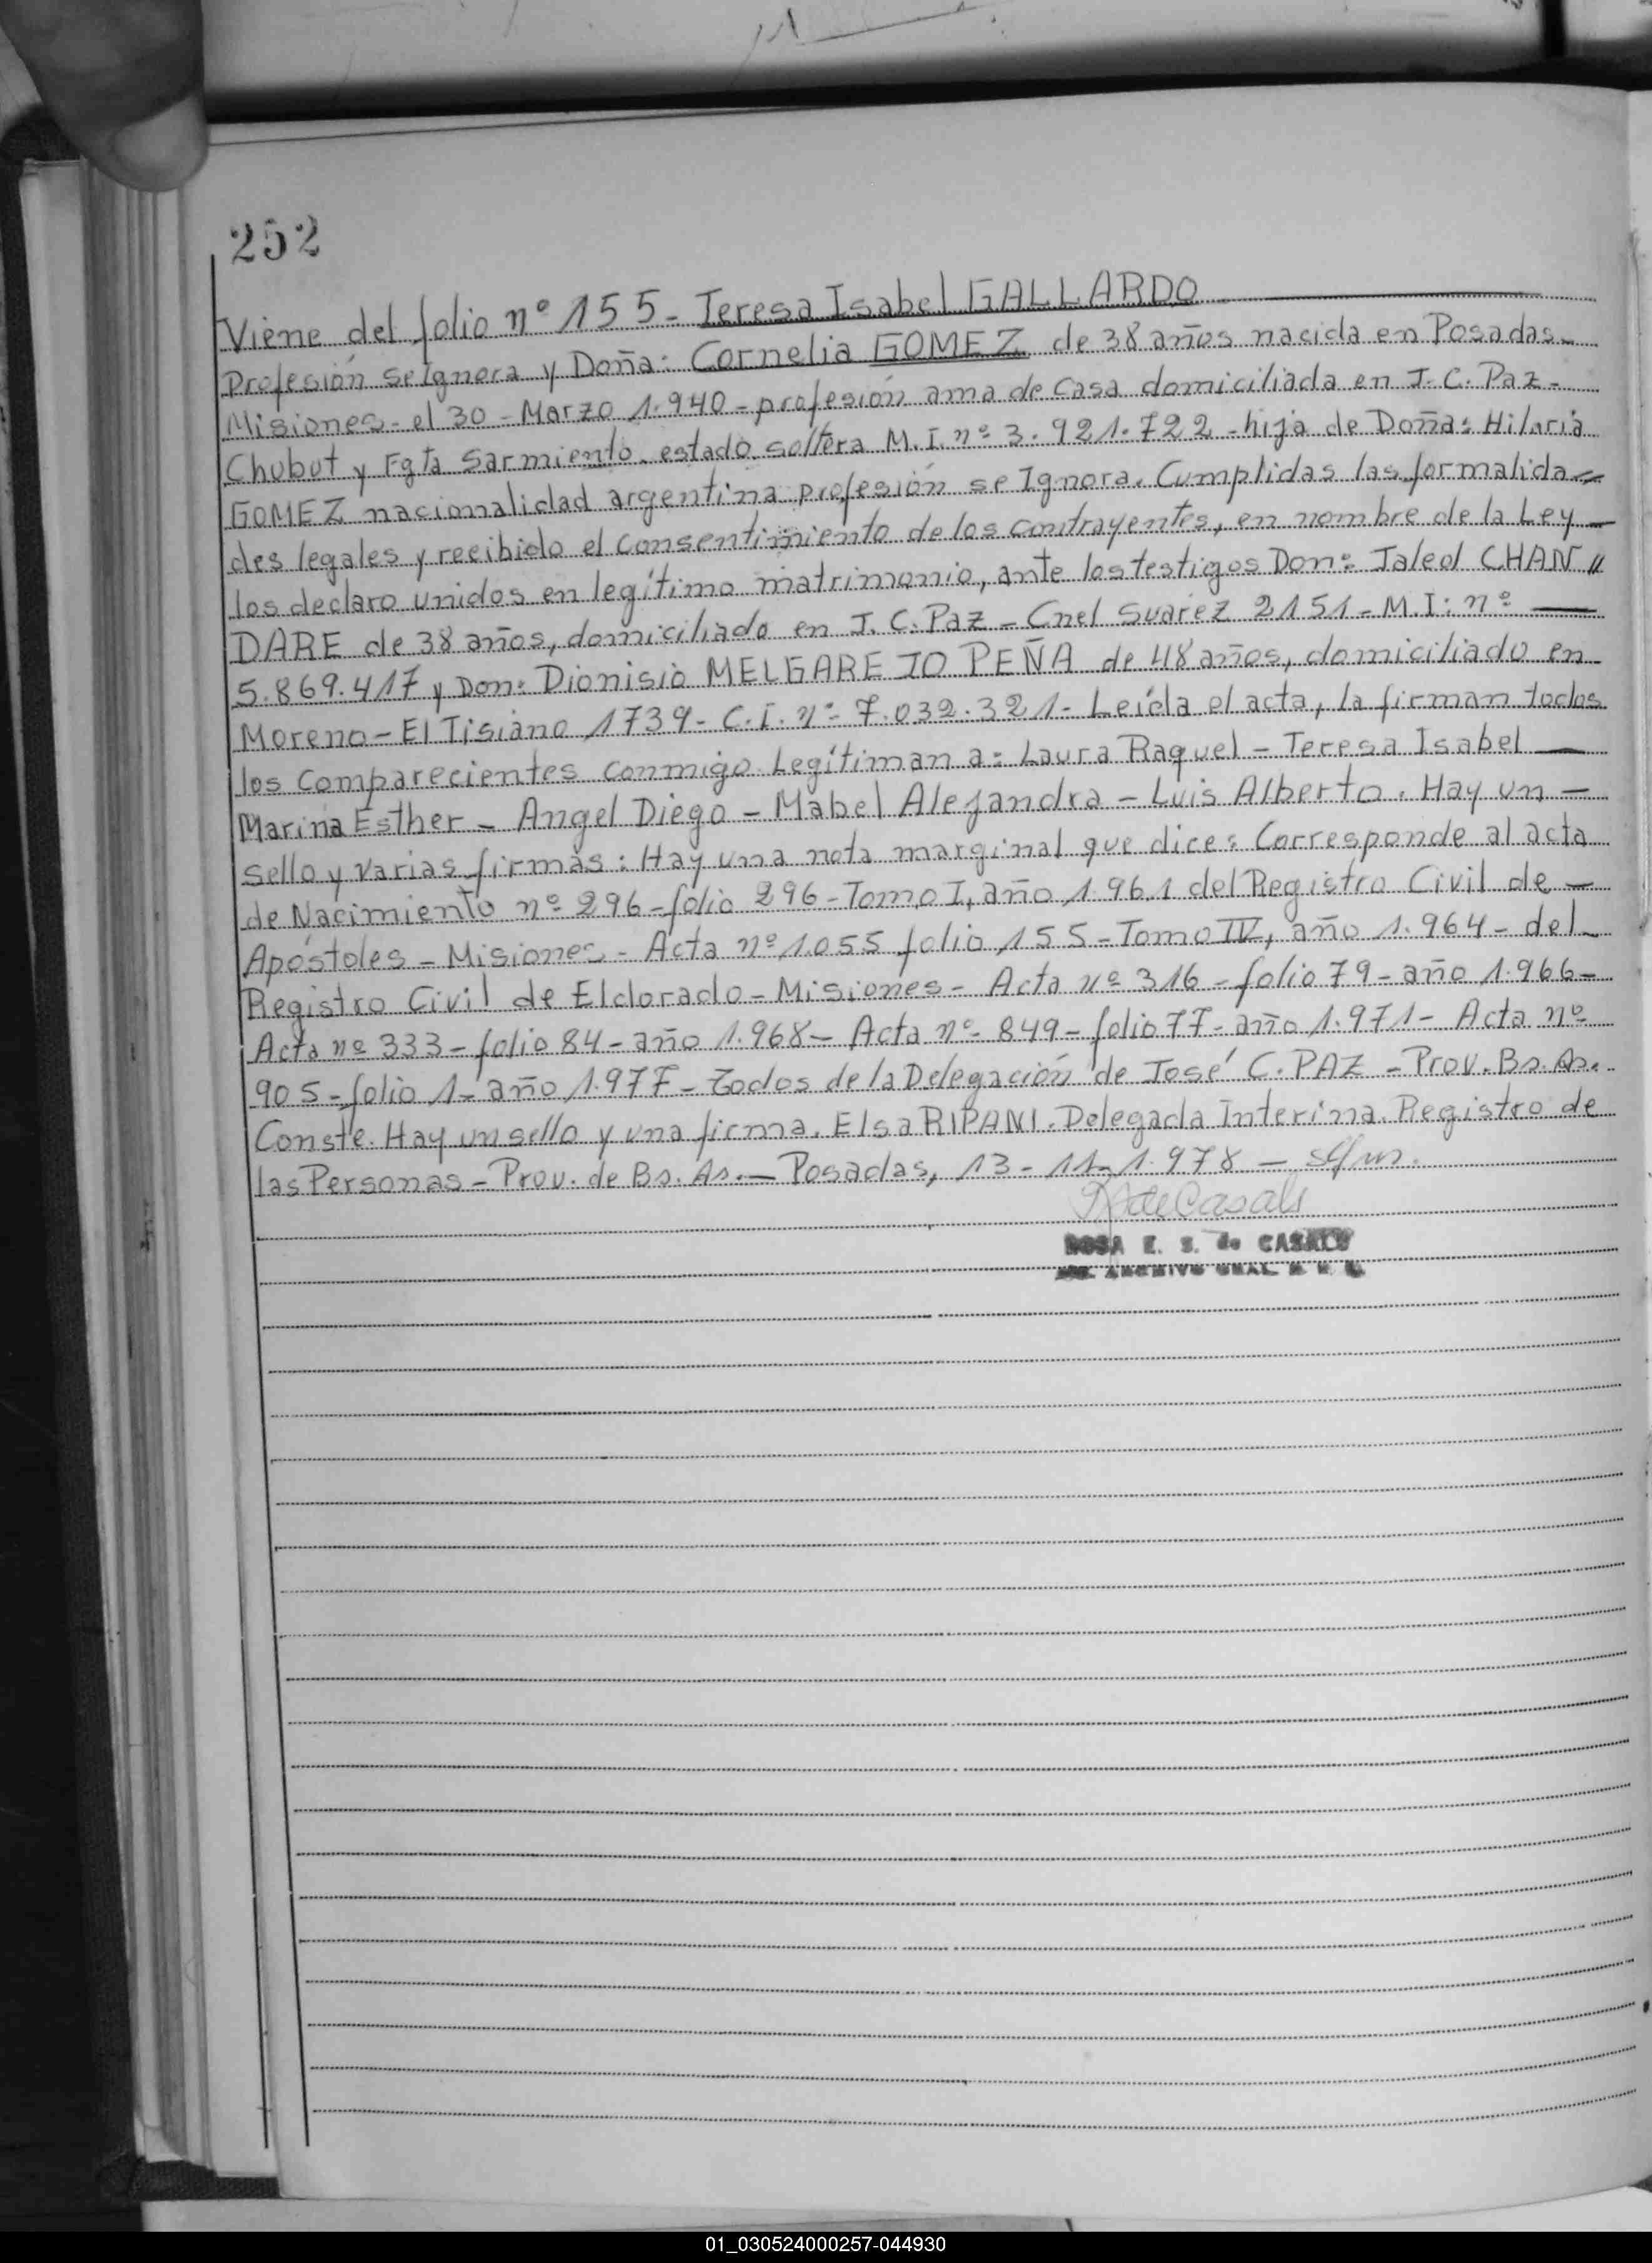 252
Viene del folio nº 155- Teresa Isabel GALLARDO
Profesión se Ignora y Doña: Cornelia GOMEZ de 38 años nacida en Posadas-
Misiones- el 30- Marzo 1.940- profesión ama de casa domiciliada en J. C. Paz-
Chubut y Fgta Sarmiento- estado soltera M. I. nº 3.921.722- hija de Doña: Hilaria
GOMEZ nacionalidad argentina profesión se Ignora. Cumplidas las formalida=
des legales y recibido el consentimiento de los contrayentes, en nombre de la Ley-
los declaro unidos en legítimo matrimonio, ante los testigos Don: Jaled CHAN"
DARE de 38 años, domiciliado en J. C. Paz- Cnel Suarez 2151- M.I: nº —
5.869.417 y Don: Dionisio MELGAREJO PEÑA de 48 años, domiciliado en
Moreno- El Tisiano 1739- C.I. nº 7.032.321- Leída el acta, la firman todos
los comparecientes conmigo. Legítiman a: Laura Raquel- Teresa Isabel —
Marina Esther- Angel Diego- Mabel Alejandra- Luis Alberto. Hay un-
sello y varias firmas: Hay una nota marginal que dice: Corresponde al acta
de Nacimiento nº 296- folio 296- Tomo I, año 1.961 del Registro Civil de-
Apóstoles- Misiones- Acta nº 1.055 folio 155- Tomo IV, año 1.964- del-
Registro Civil de Eldorado- Misiones- Acta nº 316- folio 79- año 1.966-
Acta nº 333- folio 84- año 1.968- Acta nº 849- folio 77- año 1.971- Acta nº
905- folio 1- año 1.977- Todos de la Delegación de José C. PAZ- Prov. Bs. As.
Conste. Hay un sello y una firma. Elsa RIPANI. Delegada Interina. Registro de
las Personas- Prov. de Bs. As.- Posadas, 13- 11- 1.978-
de Casals
ROSA E. S. de CASALS
ARCHIVO GRAL.
01_030524000257-044930